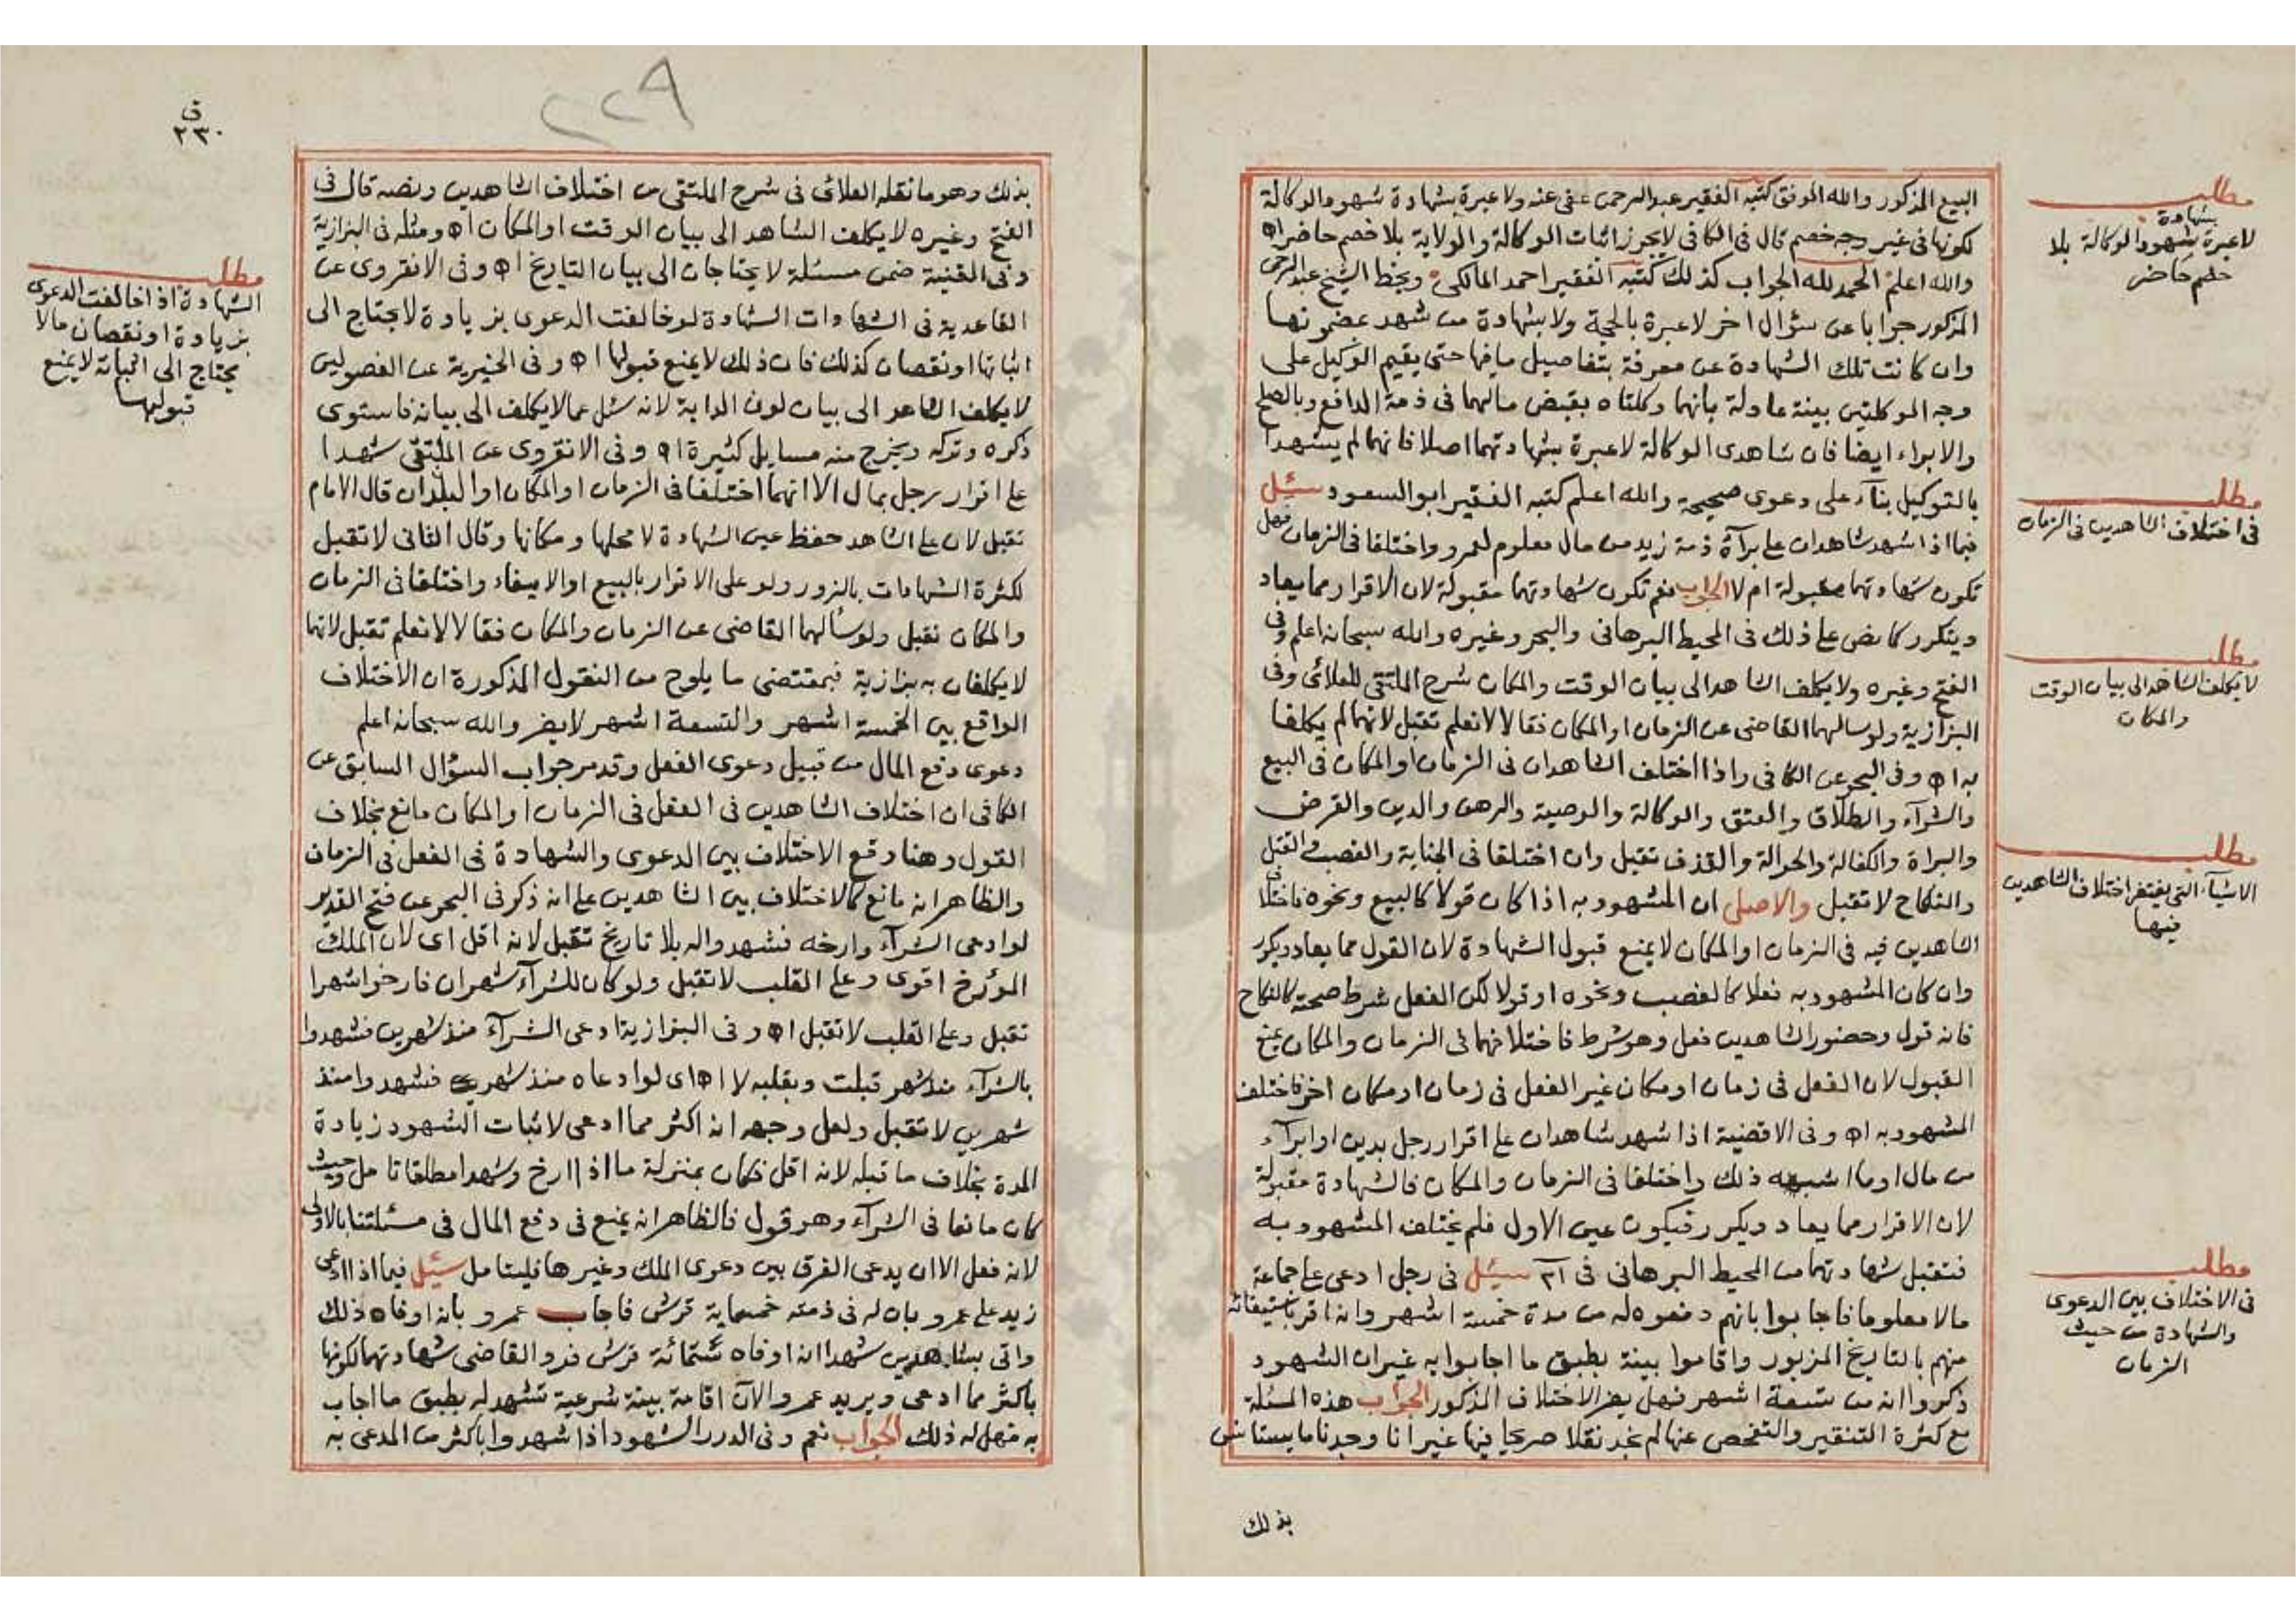 البيع المذكور والله الموفق كتبه الفقير عبد الرحمن عفى عنه ولا عبرة بشهادة شهود الوكالة
لكونها فى غير وجه خصم قال فى الكافى لا يجوز اثبات الوكالة والولاية بلا خصم حاضر اه
والله اعلم الحمد لله الجواب كذلك كتبه الفقير احمد المالكى وبخط الشيخ عبد الرحمن
المذكور جوابا عن سؤال اخر لا عبرة بالحجة ولا بشهادة من شهد بمضمونها
وان كانت تلك الشهادة عن معرفة بتفاصيل ما فيها حتى يقيم الوكيل على
وجه الموكلتين بينة عادلة بانهما وكلتاه بقبض مالهما فى ذمة الدافع وبالصلح
والابراء ايضا فان شاهدى الوكالة لا عبرة بشهادتهما اصلا فانهما لم يشهدا
بالتوكيل بناء على دعوى صحيحة والله اعلم كتبه الفقير ابو السعود سئل
فيما اذا شهد شاهدان على برآة ذمة زيد من مال معلوم لعمرو واختلفا فى الزمان فهل
تكون شهادتهما مقبولة ام لا الجواب نعم تكون شهادتهما مقبولة لان الاقرار مما يعاد
ويتكرر كما نص على ذلك فى المحيط البرهانى والبحر وغيره والله سبحانه اعلم وفى
الفتح وغيره ولا يكلف الشاهد الى بيان الوقت والمكان شرح الملتقى للعلائى وفى
البزازية ولو سالهما القاضى عن الزمان او المكان فقالا لا نعلم تقبل لانهما لم يكلفا
به اه وفى البحر عن الكافى واذا اختلف الشاهدان فى الزمان او المكان فى البيع
والشرآء والطلاق والعتق والوكالة والوصية والرهن والدين والقرض
والبراة والكفالة والحوالة والقذف تقبل وان اختلفا فى الجناية والغصب والقتل
والنكاح لا تقبل والاصل ان المشهود به اذا كان قولا كالبيع ونحوه فاختلاف
الشاهدين فيه فى الزمان او المكان لا يمنع قبول الشهادة لان القول مما يعاد ويكرر
وان كان المشهود به فعلا كالغصب ونحوه او قولا لكن الفعل شرط صحته كالنكاح
فانه قول وحضور الشاهدين فعل وهو شرط فاختلافهما فى الزمان والمكان يمنع
القبول لان الفعل فى زمان او مكان غير الفعل فى زمان او مكان اخر فاختلف
المشهود به اه وفى الاقضية اذا شهد شاهدان على اقرار رجل بدين او ابرآء
من مال او ما اشبهه ذلك واختلفا فى الزمان والمكان فالشهادة مقبولة
لان الاقرار مما يعاد ويكرر فيكون عين الاول فلم يختلف المشهود به
فتقبل شهادتهما من المحيط البرهانى فى سئل فى رجل ادعى على جماعة
مالا معلوما فاجابوا بانهم دفعوه له من مدة خمسة اشهر وانه اقر باستيفائه
منهم بالتاريخ المزبور واقاموا بينة بطبق ما اجابوا به غير ان الشهود
ذكروا انه من تسعة اشهر فهل يضر الاختلاف المذكور الجواب هذه المسئلة
مع كثرة التنقير والتفحص عنها لم نجد نقلا صريحا فيها غير انا وجدنا ما يستانس
بذلك
مطلب
بشهادة
لا عبرة شهود الوكالة بلا
خصم حاضر
مطلب
فى اختلاف الشاهدين فى الزمان
مطلب
لا يكلف الشاهد الى بيان الوقت
والمكان
مطلب
الاشيآء التى يغتفر اختلاف الشاهدين
فيها
مطلب
فى الاختلاف بين الدعوى
والشهادة من حيث
الزمان
٢٢٩
٢٣٠
بذلك وهو ما نقله العلائى فى شرح الملتقى من اختلاف الشاهدين ونصه قال فى
الفتح وغيره لا يكلف الشاهد الى بيان الوقت او المكان اه ومثله فى البزازية
وفى القنية ضمن مسئلة لا يحتاجان الى بيان التاريخ اه وفى الانقروى عن
القاعدية فى الشهادات الشهادة لو خالفت الدعوى بزيادة لا يحتاج الى
اثباتها او نقصان كذلك فان ذلك لا يمنع قبولها اه وفى الخيرية عن الفصولين
لا يكلف الشاهد الى بيان لون الدابة لانه سئل عما لا يكلف الى بيانه فاستوى
ذكره وتركه ويخرج منه مسايل كثيرة اه وفى الانقروى عن الملتقى شهدا
على اقرار رجل بمال الا انهما اختلفا فى الزمان او المكان او البلدان قال الامام
تقبل لان على الشاهد حفظ عين الشهادة لا محلها ومكانها وقال الثانى لا تقبل
لكثرة الشهادات بالزور ولو على الاقرار بالبيع او الايفاء واختلفا فى الزمان
والمكان تقبل ولو سألهما القاضى عن الزمان والمكان فقالا لا نعلم تقبل لانهما
لا يكلفان به بزازية فبمقتضى ما يلوح من النقول المذكورة ان الاختلاف
الواقع بين الخمسة اشهر والتسعة اشهر لا يضر والله سبحانه اعلم
دعوى دفع المال من قبيل دعوى الفعل وقد مر جواب السؤال السابق عن
الكافى ان اختلاف الشاهدين فى الفعل فى الزمان او المكان مانع بخلاف
القول وهنا وقع الاختلاف بين الدعوى والشهادة فى الفعل فى الزمان
والظاهر انه مانع كالاختلاف بين الشاهدين على انه ذكر فى البحر عن فتح القدير
لو ادعى الشرآء وارخه فشهدوا له بلا تاريخ تقبل لانه اقل اى لان الملك
المؤرخ اقوى وعلى القلب لا تقبل ولو كان للشرآء شهران فارخوا شهرا
تقبل وعلى القلب لا تقبل اه وفى البزازية ادعى الشرآء منذ شهرين فشهدوا
بالشرآء منذ شهر قبلت وبقلبه لا اه اى لو ادعاه منذ شهر فشهدوا منذ
شهرين لا تقبل ولعل وجهه انه اكثر مما ادعى لاثبات الشهود زيادة
المدة بخلاف ما قبله لانه اقل فكان بمنزلة ما اذا ارخ وشهدا مطلقا تامل وحيث
كان مانعا فى الشرآء وهو قول فالظاهر انه يمنع فى دفع المال فى مسئلتنا بالاولى
لانه فعل الا ان يدعى الفرق بين دعوى الملك وغيرها فليتامل سئل فيما اذا ادعى
زيد على عمرو بان له فى ذمته خمسماية قرش فاجاب عمرو بانه اوفاه ذلك
واتى بشاهدين شهدا انه اوفاه ستمائة قرش فرد القاضى شهادتهما لكونها
باكثر مما ادعى ويريد عمرو الآن اقامة بينة شرعية تشهد له بطبق ما اجاب
به فهل له ذلك الجواب نعم وفى الدرر الشهود اذا شهدوا باكثر من المدعى به
مطلب
الشهادة اذا خالفت الدعوى
بزيادة او نقصان مالا
يحتاج الى اثباته لا يمنع
قبولها